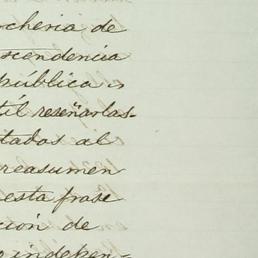 cheria de
scendencia
pública es
til reseñarlas
tados al
reasumen
esta frase
ción de
indepen-